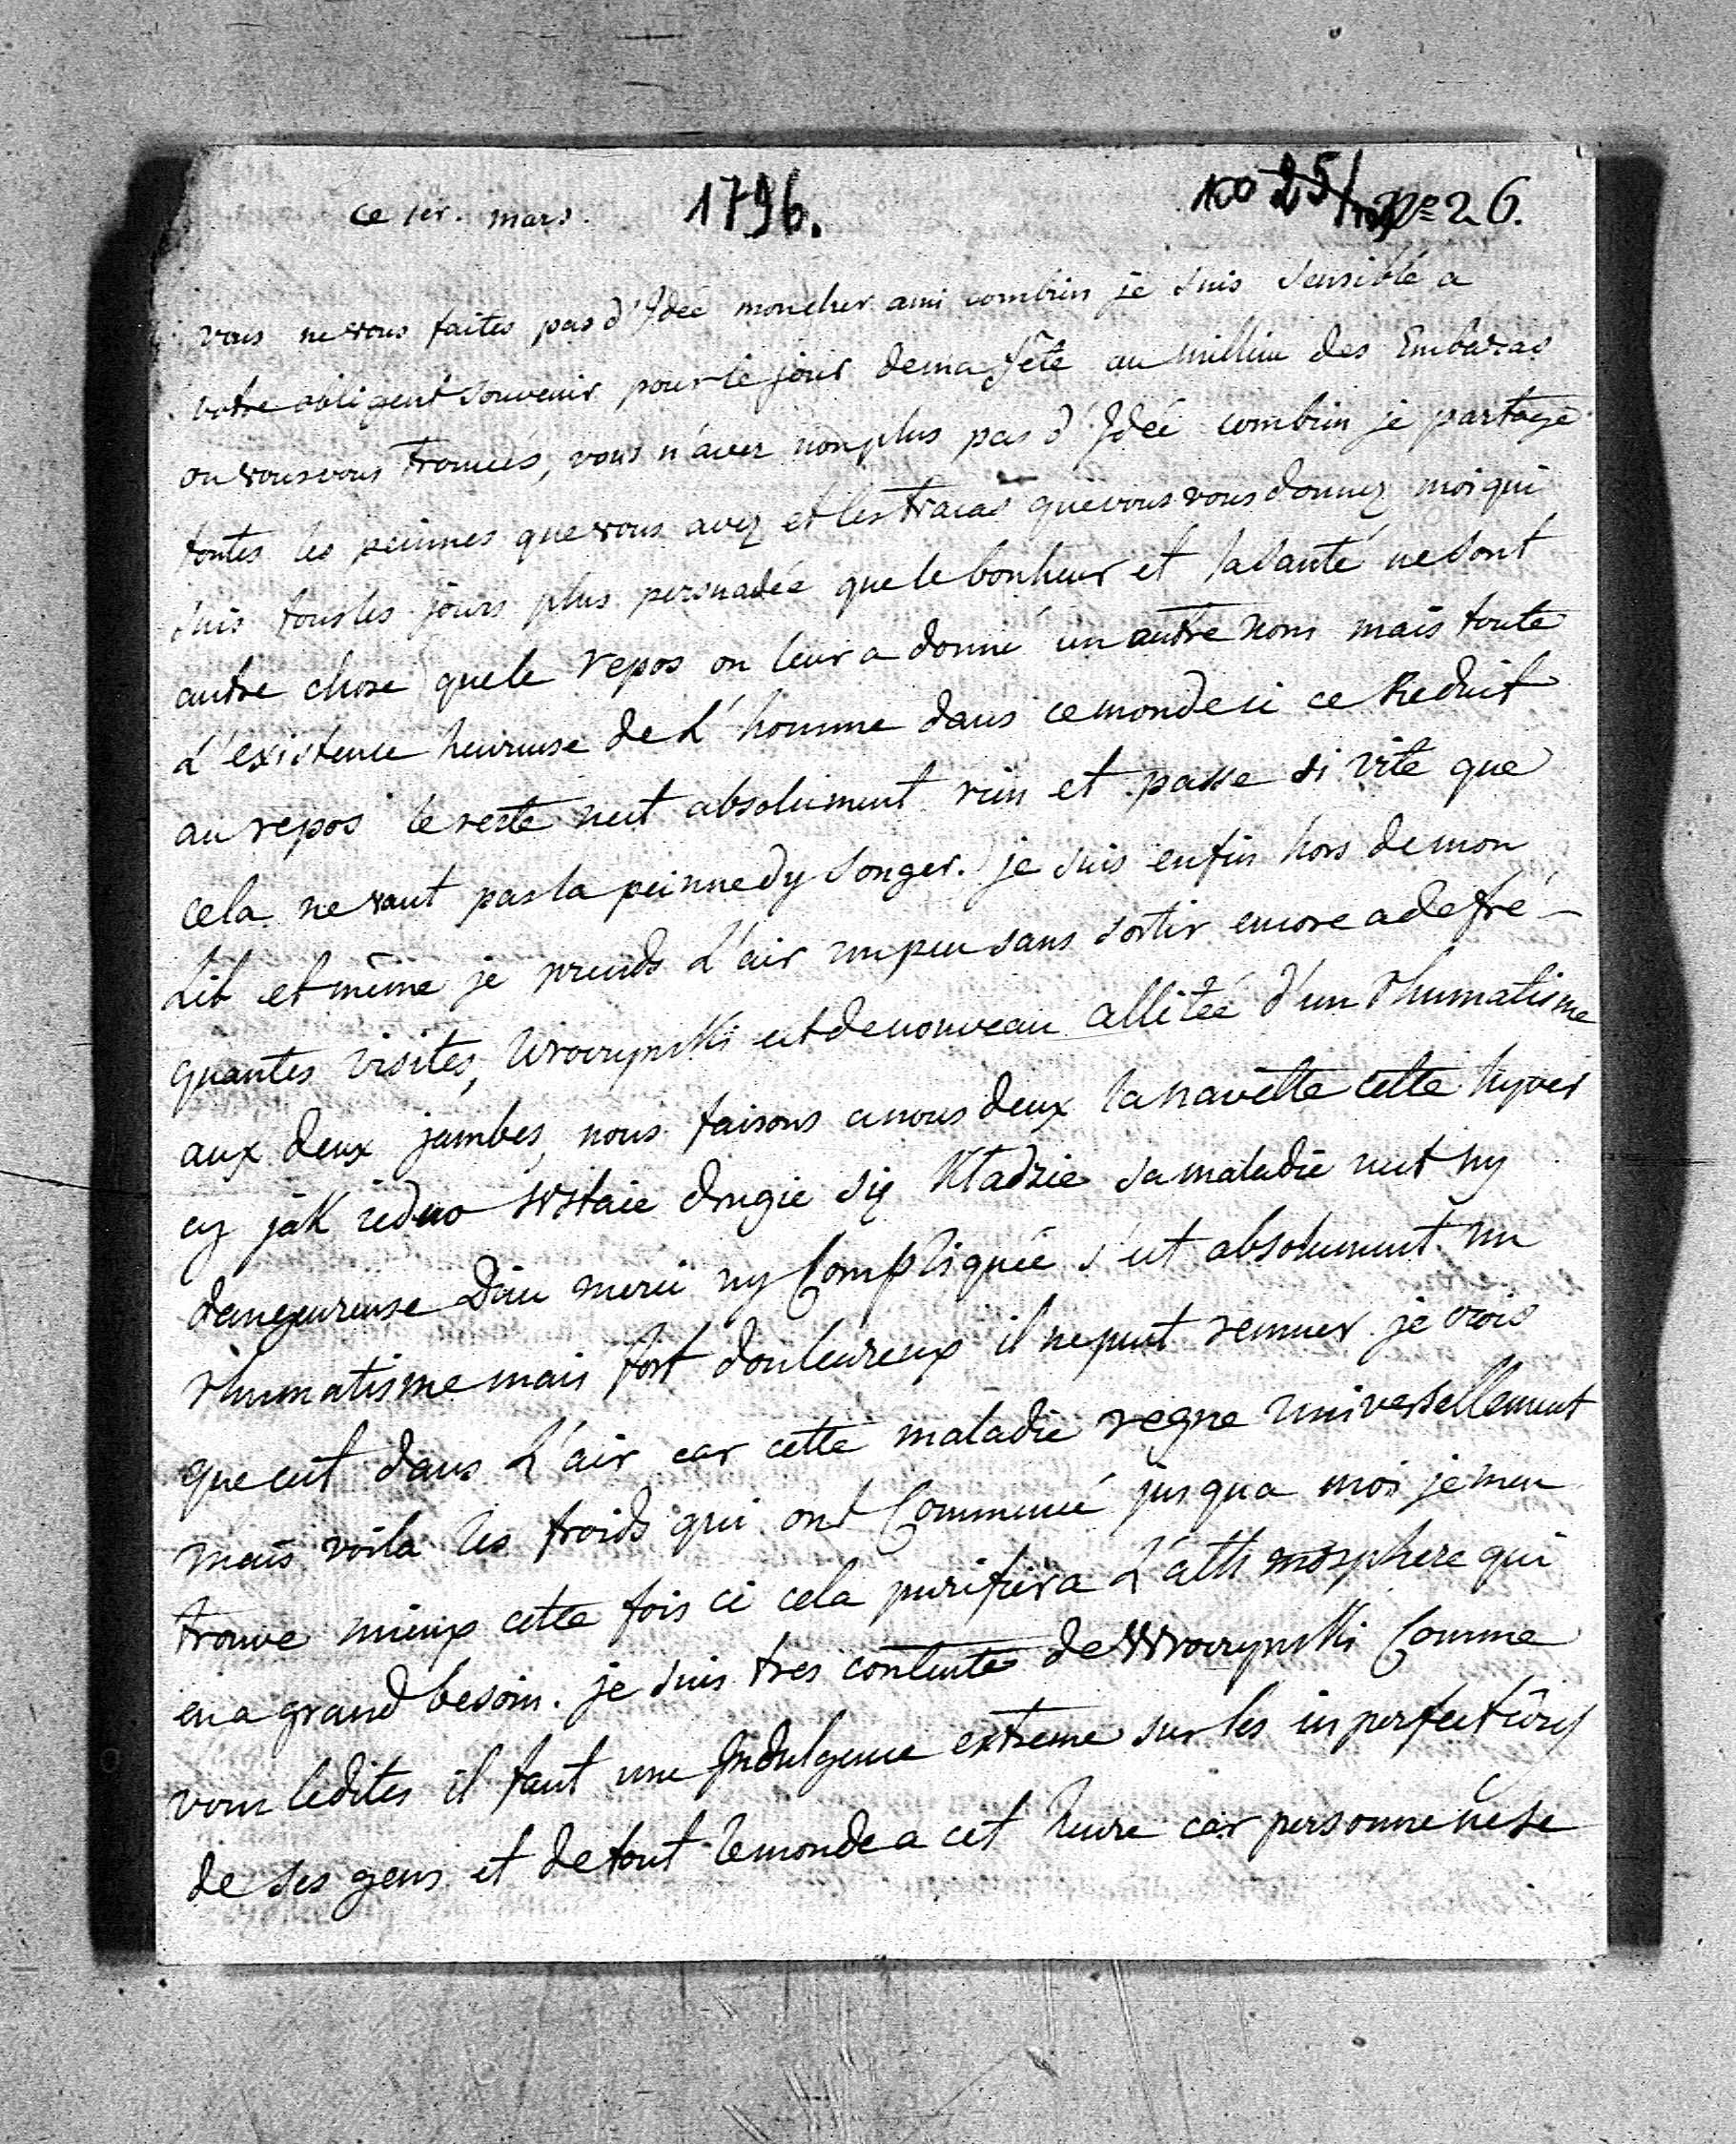 ce 1er. mars. 1796. 100 25/ No 26.
vous ne vous faites pas d'Idée mon cher ami combien je suis sensible a
votre obligent souvenir pour le jour de ma fête au millieu des Embaras
ou vous vous trouvés, vous n'avez non plus pas d'Idée combien je partage
toutes les peinnes que vous avez et les tracas que vous vous donnez moi qui
suis tous les jours plus persuadée que le bonheur et la santé ne sont
autre chose que le repos on leur a donné un autre nom mais toute
L'existence heureuse de L'homme dans ce monde ci ce Reduit
au repos le reste nest absolument rien et passe si vite que
cela ne vaut pas la peinne dy songer. je suis enfin hors de mon
Lit et même je prends L'air un peu sans sortir encore a de fré-
quantes visites, Wroczynski est de nouveau allitée d'un rhumatisme
aux deux jambes, nous faisons a nous deux la navette cette hyver
cy jak iedno wstaie drugie się kładzie sa maladie nest ny
dangeureuse Dieu merci ny Compliquée s'est absolument un
rhumatisme mais fort douleureux il ne peut remuer je crois
que cest dans L'air car cette maladie regne universellement
mais voila les froids qui ont Commencé jusqua moi je men
trouve mieux cette fois ci cela purifiera L'athmosphere qui
en a grand besoin. je suis tres contente de Wroczynski Comme
vous le dites il faut une Indulgence extreme sur les inperfections
de ses gens et de tout le monde a cet heure car personne ne se